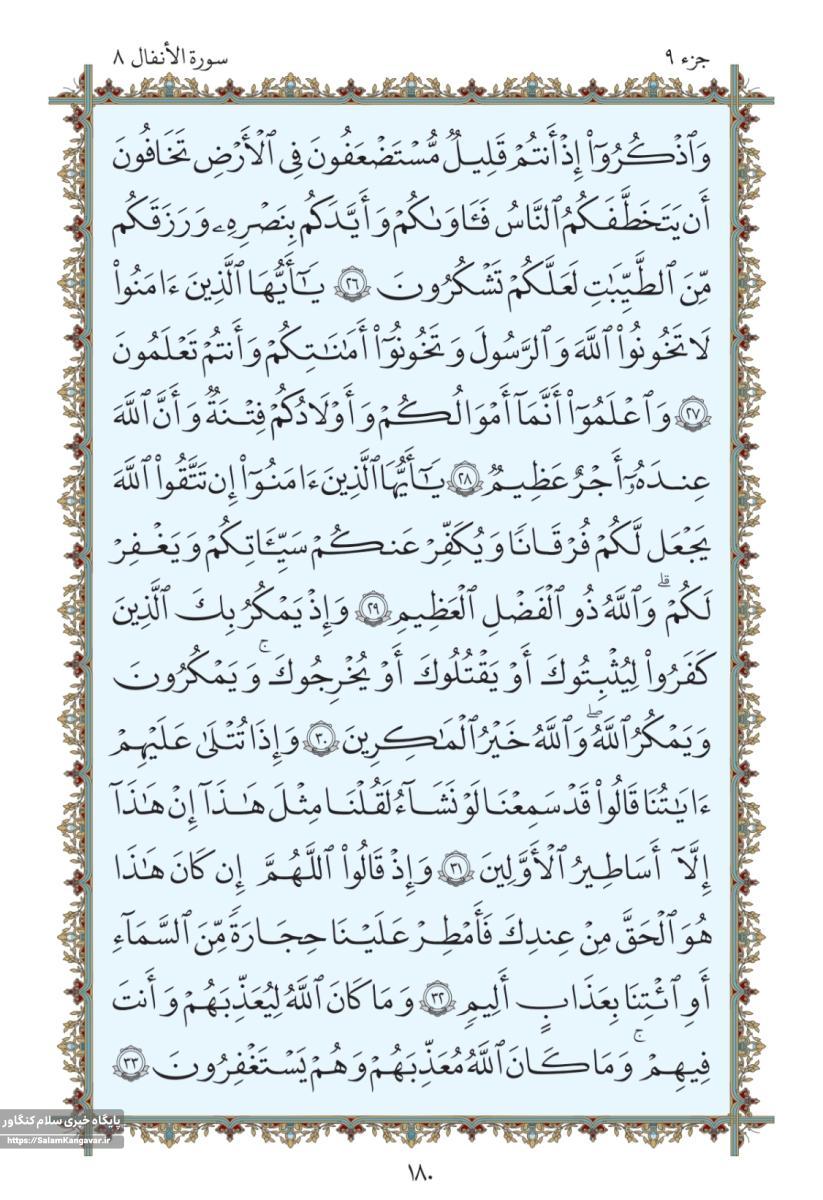 جزء ٩
سورة الأنفال ٨
وَٱذْكُرُوٓا۟ إِذْ أَنتُمْ قَلِيلٌ مُّسْتَضْعَفُونَ فِى ٱلْأَرْضِ تَخَافُونَ
أَن يَتَخَطَّفَكُمُ ٱلنَّاسُ فَـَٔاوَىٰكُمْ وَأَيَّدَكُم بِنَصْرِهِۦ وَرَزَقَكُم
مِّنَ ٱلطَّيِّبَٰتِ لَعَلَّكُمْ تَشْكُرُونَ ٢٦ يَٰٓأَيُّهَا ٱلَّذِينَ ءَامَنُوا۟
لَا تَخُونُوا۟ ٱللَّهَ وَٱلرَّسُولَ وَتَخُونُوٓا۟ أَمَٰنَٰتِكُمْ وَأَنتُمْ تَعْلَمُونَ
٢٧ وَٱعْلَمُوٓا۟ أَنَّمَآ أَمْوَٰلُكُمْ وَأَوْلَٰدُكُمْ فِتْنَةٌ وَأَنَّ ٱللَّهَ
عِندَهُۥٓ أَجْرٌ عَظِيمٌ ٢٨ يَٰٓأَيُّهَا ٱلَّذِينَ ءَامَنُوٓا۟ إِن تَتَّقُوا۟ ٱللَّهَ
يَجْعَل لَّكُمْ فُرْقَانًا وَيُكَفِّرْ عَنكُمْ سَيِّـَٔاتِكُمْ وَيَغْفِرْ
لَكُمْ ۗ وَٱللَّهُ ذُو ٱلْفَضْلِ ٱلْعَظِيمِ ٢٩ وَإِذْ يَمْكُرُ بِكَ ٱلَّذِينَ
كَفَرُوا۟ لِيُثْبِتُوكَ أَوْ يَقْتُلُوكَ أَوْ يُخْرِجُوكَ ۚ وَيَمْكُرُونَ
وَيَمْكُرُ ٱللَّهُ ۖ وَٱللَّهُ خَيْرُ ٱلْمَٰكِرِينَ ٣٠ وَإِذَا تُتْلَىٰ عَلَيْهِمْ
ءَايَٰتُنَا قَالُوا۟ قَدْ سَمِعْنَا لَوْ نَشَآءُ لَقُلْنَا مِثْلَ هَٰذَآ إِنْ هَٰذَآ
إِلَّآ أَسَٰطِيرُ ٱلْأَوَّلِينَ ٣١ وَإِذْ قَالُوا۟ ٱللَّهُمَّ إِن كَانَ هَٰذَا
هُوَ ٱلْحَقَّ مِنْ عِندِكَ فَأَمْطِرْ عَلَيْنَا حِجَارَةً مِّنَ ٱلسَّمَآءِ
أَوِ ٱئْتِنَا بِعَذَابٍ أَلِيمٍ ٣٢ وَمَا كَانَ ٱللَّهُ لِيُعَذِّبَهُمْ وَأَنتَ
فِيهِمْ ۚ وَمَا كَانَ ٱللَّهُ مُعَذِّبَهُمْ وَهُمْ يَسْتَغْفِرُونَ ٣٣
پایگاه خبری سلام کنگاور
https://SalamKangavar.ir
١٨٠